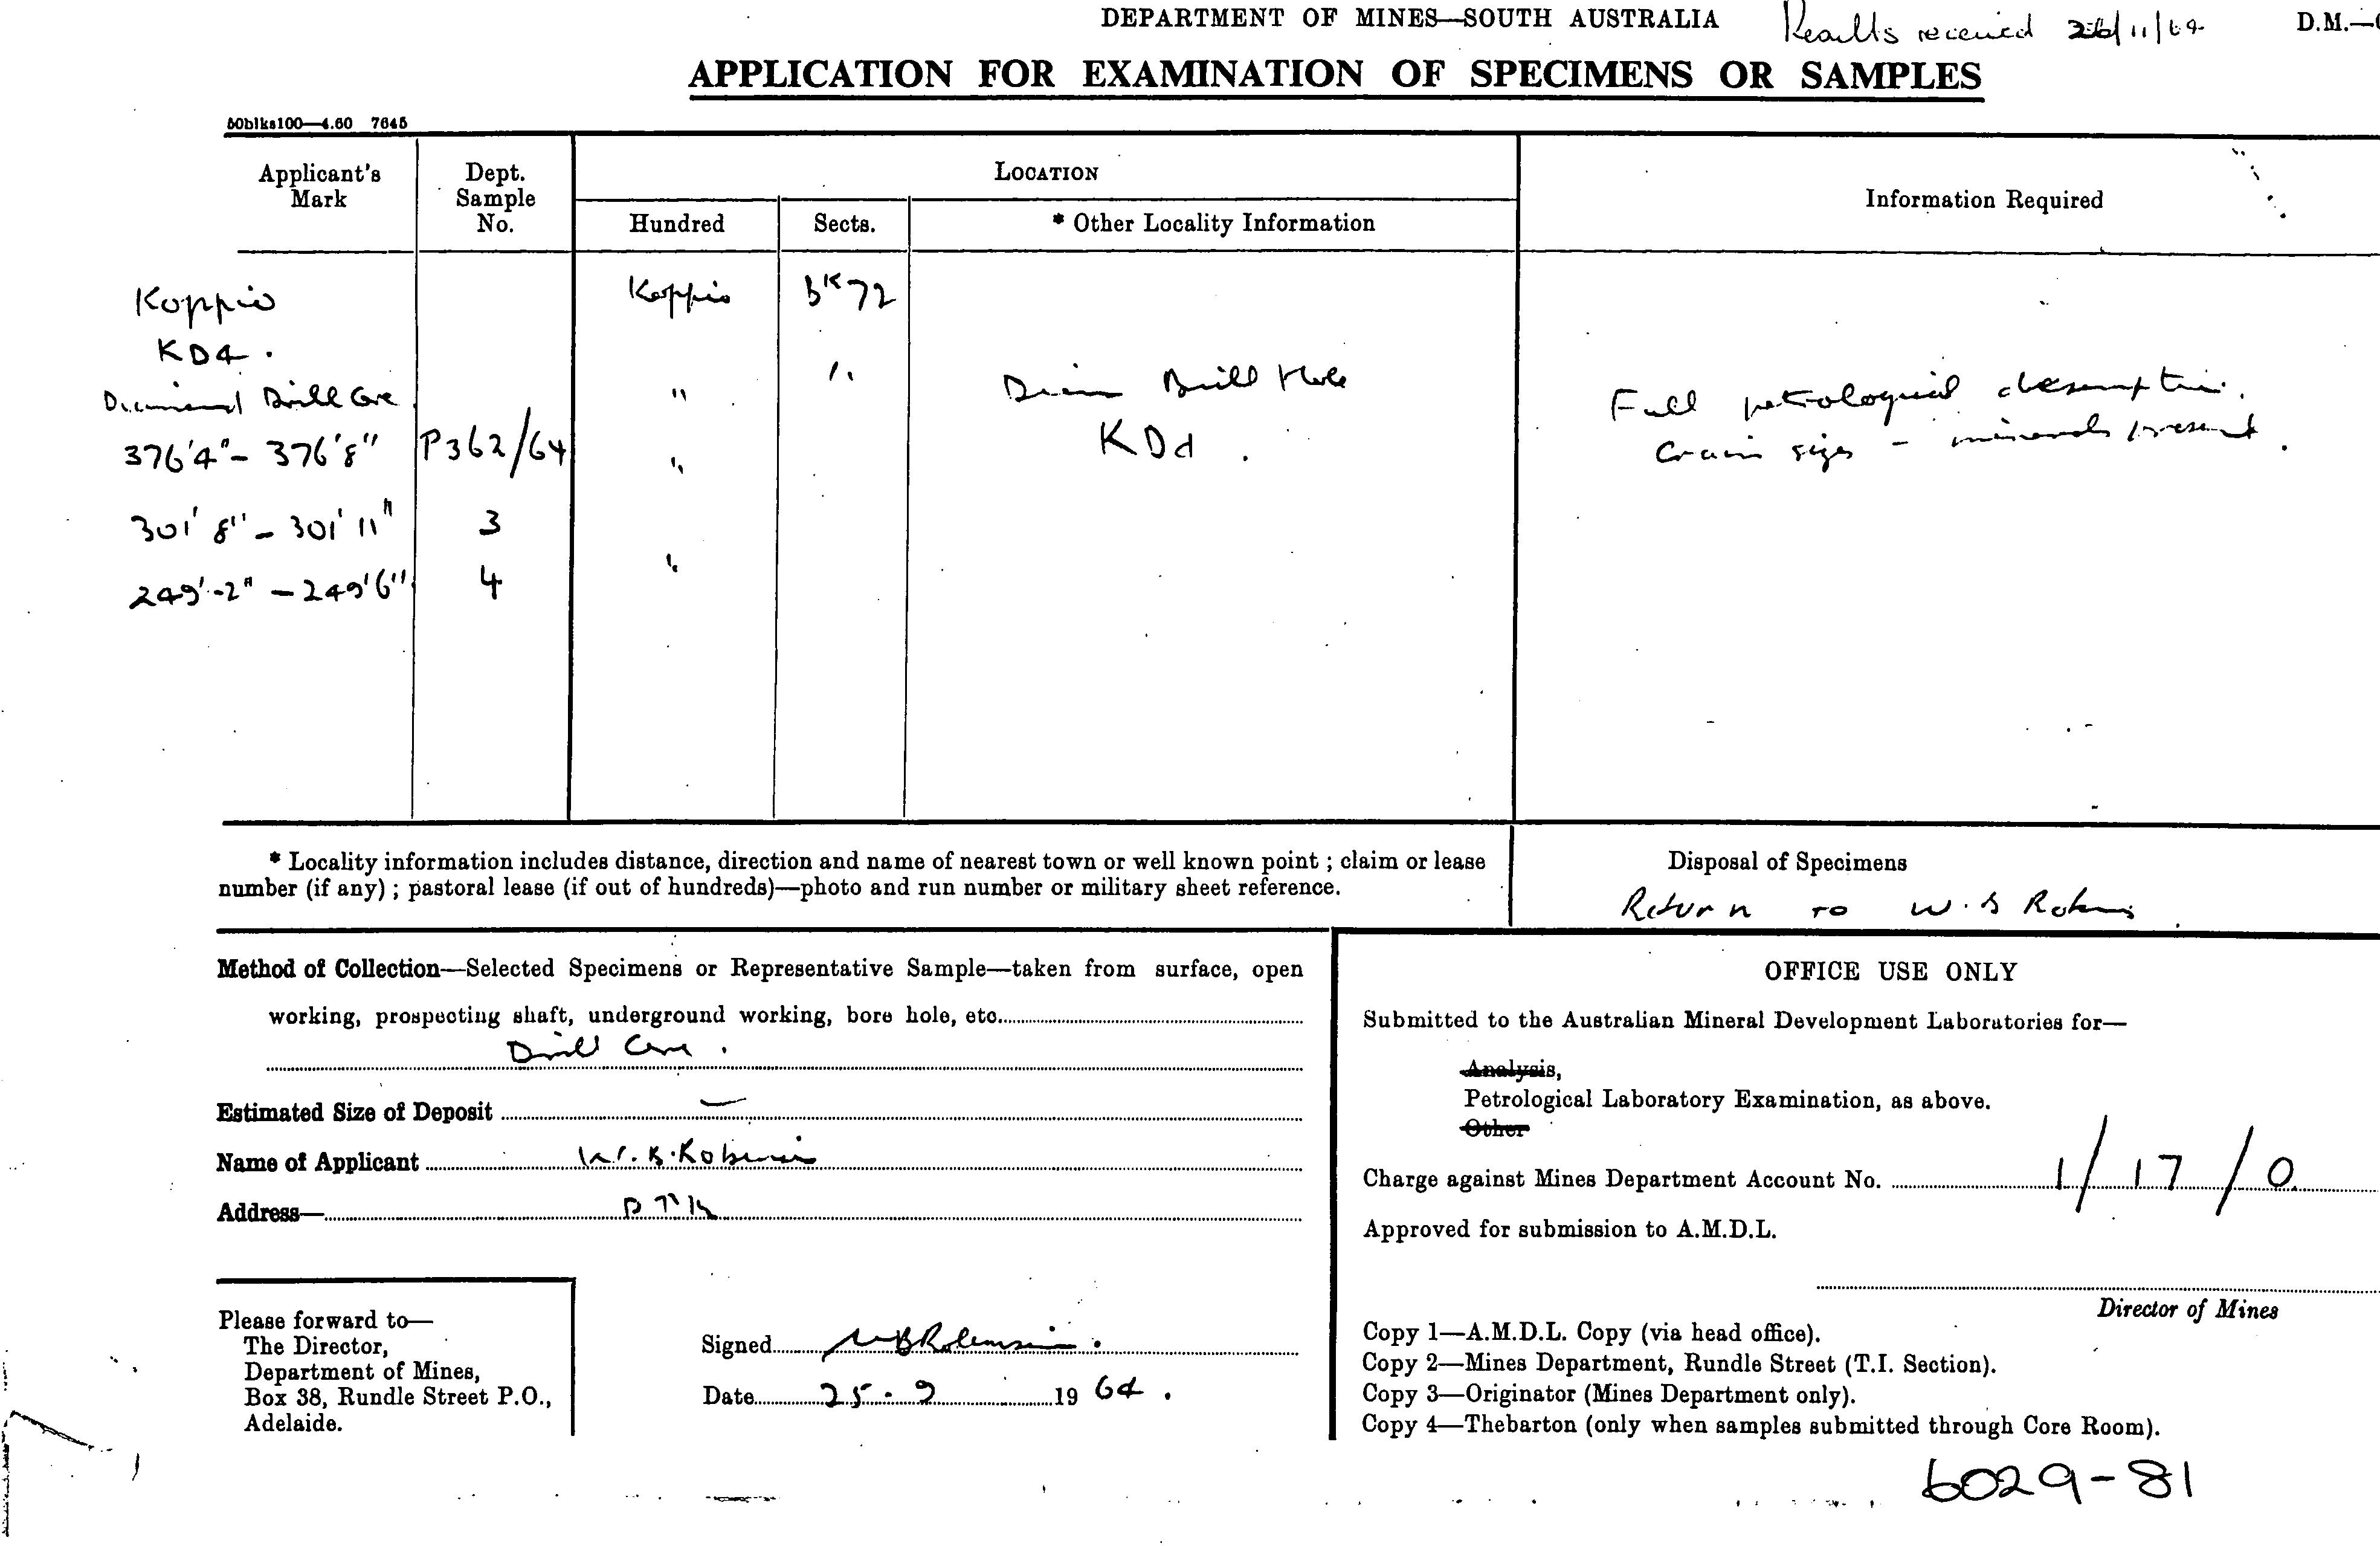 DEPARTMENT OF MINES—SOUTH AUSTRALIA
Results received 26/11/64
D.M.—
APPLICATION FOR EXAMINATION OF SPECIMENS OR SAMPLES
50blks100—4.60 7645
Applicant's Mark
Dept. Sample No.
LOCATION
Hundred
Sects.
* Other Locality Information
Information Required
Koppio
Koppio
Bk 72
KD4.
Diamond Drill Core
"
"
Diam Drill Hole
Full petrological description.
376'4"- 376'8"
P362/64
"
KD4.
Grain sizes - minerals present.
301' 8" - 301' 11"
3
249'-2" - 249'6"
4
"
* Locality information includes distance, direction and name of nearest town or well known point ; claim or lease
number (if any) ; pastoral lease (if out of hundreds)—photo and run number or military sheet reference.
Disposal of Specimens
Return to W.B
Method of Collection—Selected Specimens or Representative Sample—taken from surface, open
working, prospecting shaft, underground working, bore hole, etc.
Drill Core.
Estimated Size of Deposit —
Name of Applicant W.B. Robinson
Address—
Please forward to—
The Director,
Department of Mines,
Box 38, Rundle Street P.O.,
Adelaide.
Signed WBRobinson.
Date 25-9 1964.
OFFICE USE ONLY
Submitted to the Australian Mineral Development Laboratories for—
Analysis,
Petrological Laboratory Examination, as above.
Other
Charge against Mines Department Account No. 1/17/0
Approved for submission to A.M.D.L.
Director of Mines
Copy 1—A.M.D.L. Copy (via head office).
Copy 2—Mines Department, Rundle Street (T.I. Section).
Copy 3—Originator (Mines Department only).
Copy 4—Thebarton (only when samples submitted through Core Room).
6029-81